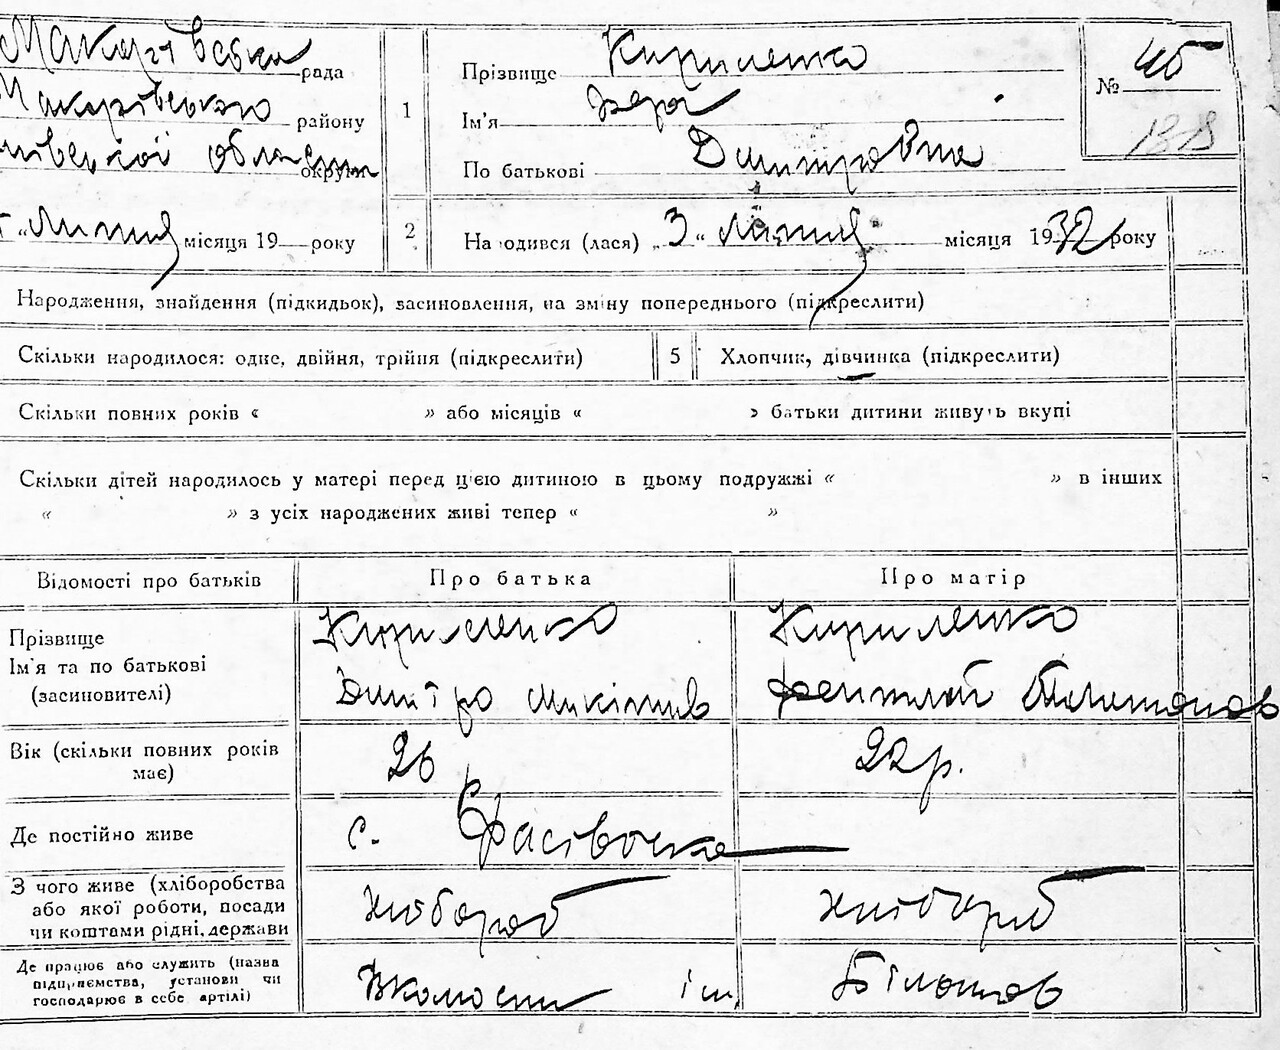 Макарівська рада
Макарівського району
області округи
Прізвище Кириленко
Ім'я Вера
По батькові Дмитровна
№ 46
1
„ Липня місяця 19 року
2
На одився (лася) „ 3 “ липня місяця 1932 року
Народження, знайдення (підкидьок), засиновлення, на зміну попереднього (підкреслити)
Скільки народилося: одне, двійня, трійня (підкреслити)
5
Хлопчик, дівчинка (підкреслити)
Скільки повних років « » або місяців « » батьки дитини живуть вкупі
Скільки дітей народилось у матері перед цією дитиною в цьому подружжі « » в інших
« » з усіх народжених живі тепер « »
Відомості про батьків
Про батька
Про матір
Прізвище
Ім'я та по батькові
(засиновителі)
Кириленко
Дмитро Микитив
Кириленко
Вік (скільки повних років
має)
26
22 р.
Де постійно живе
с. Фасівочка
З чого живе (хліборобства
або якої роботи, посади
чи коштами рідні, держави
хлібороб
хлібороб
Де працює або служить (назва
підприємства, установи чи
господарює в себе артілі)
ім.